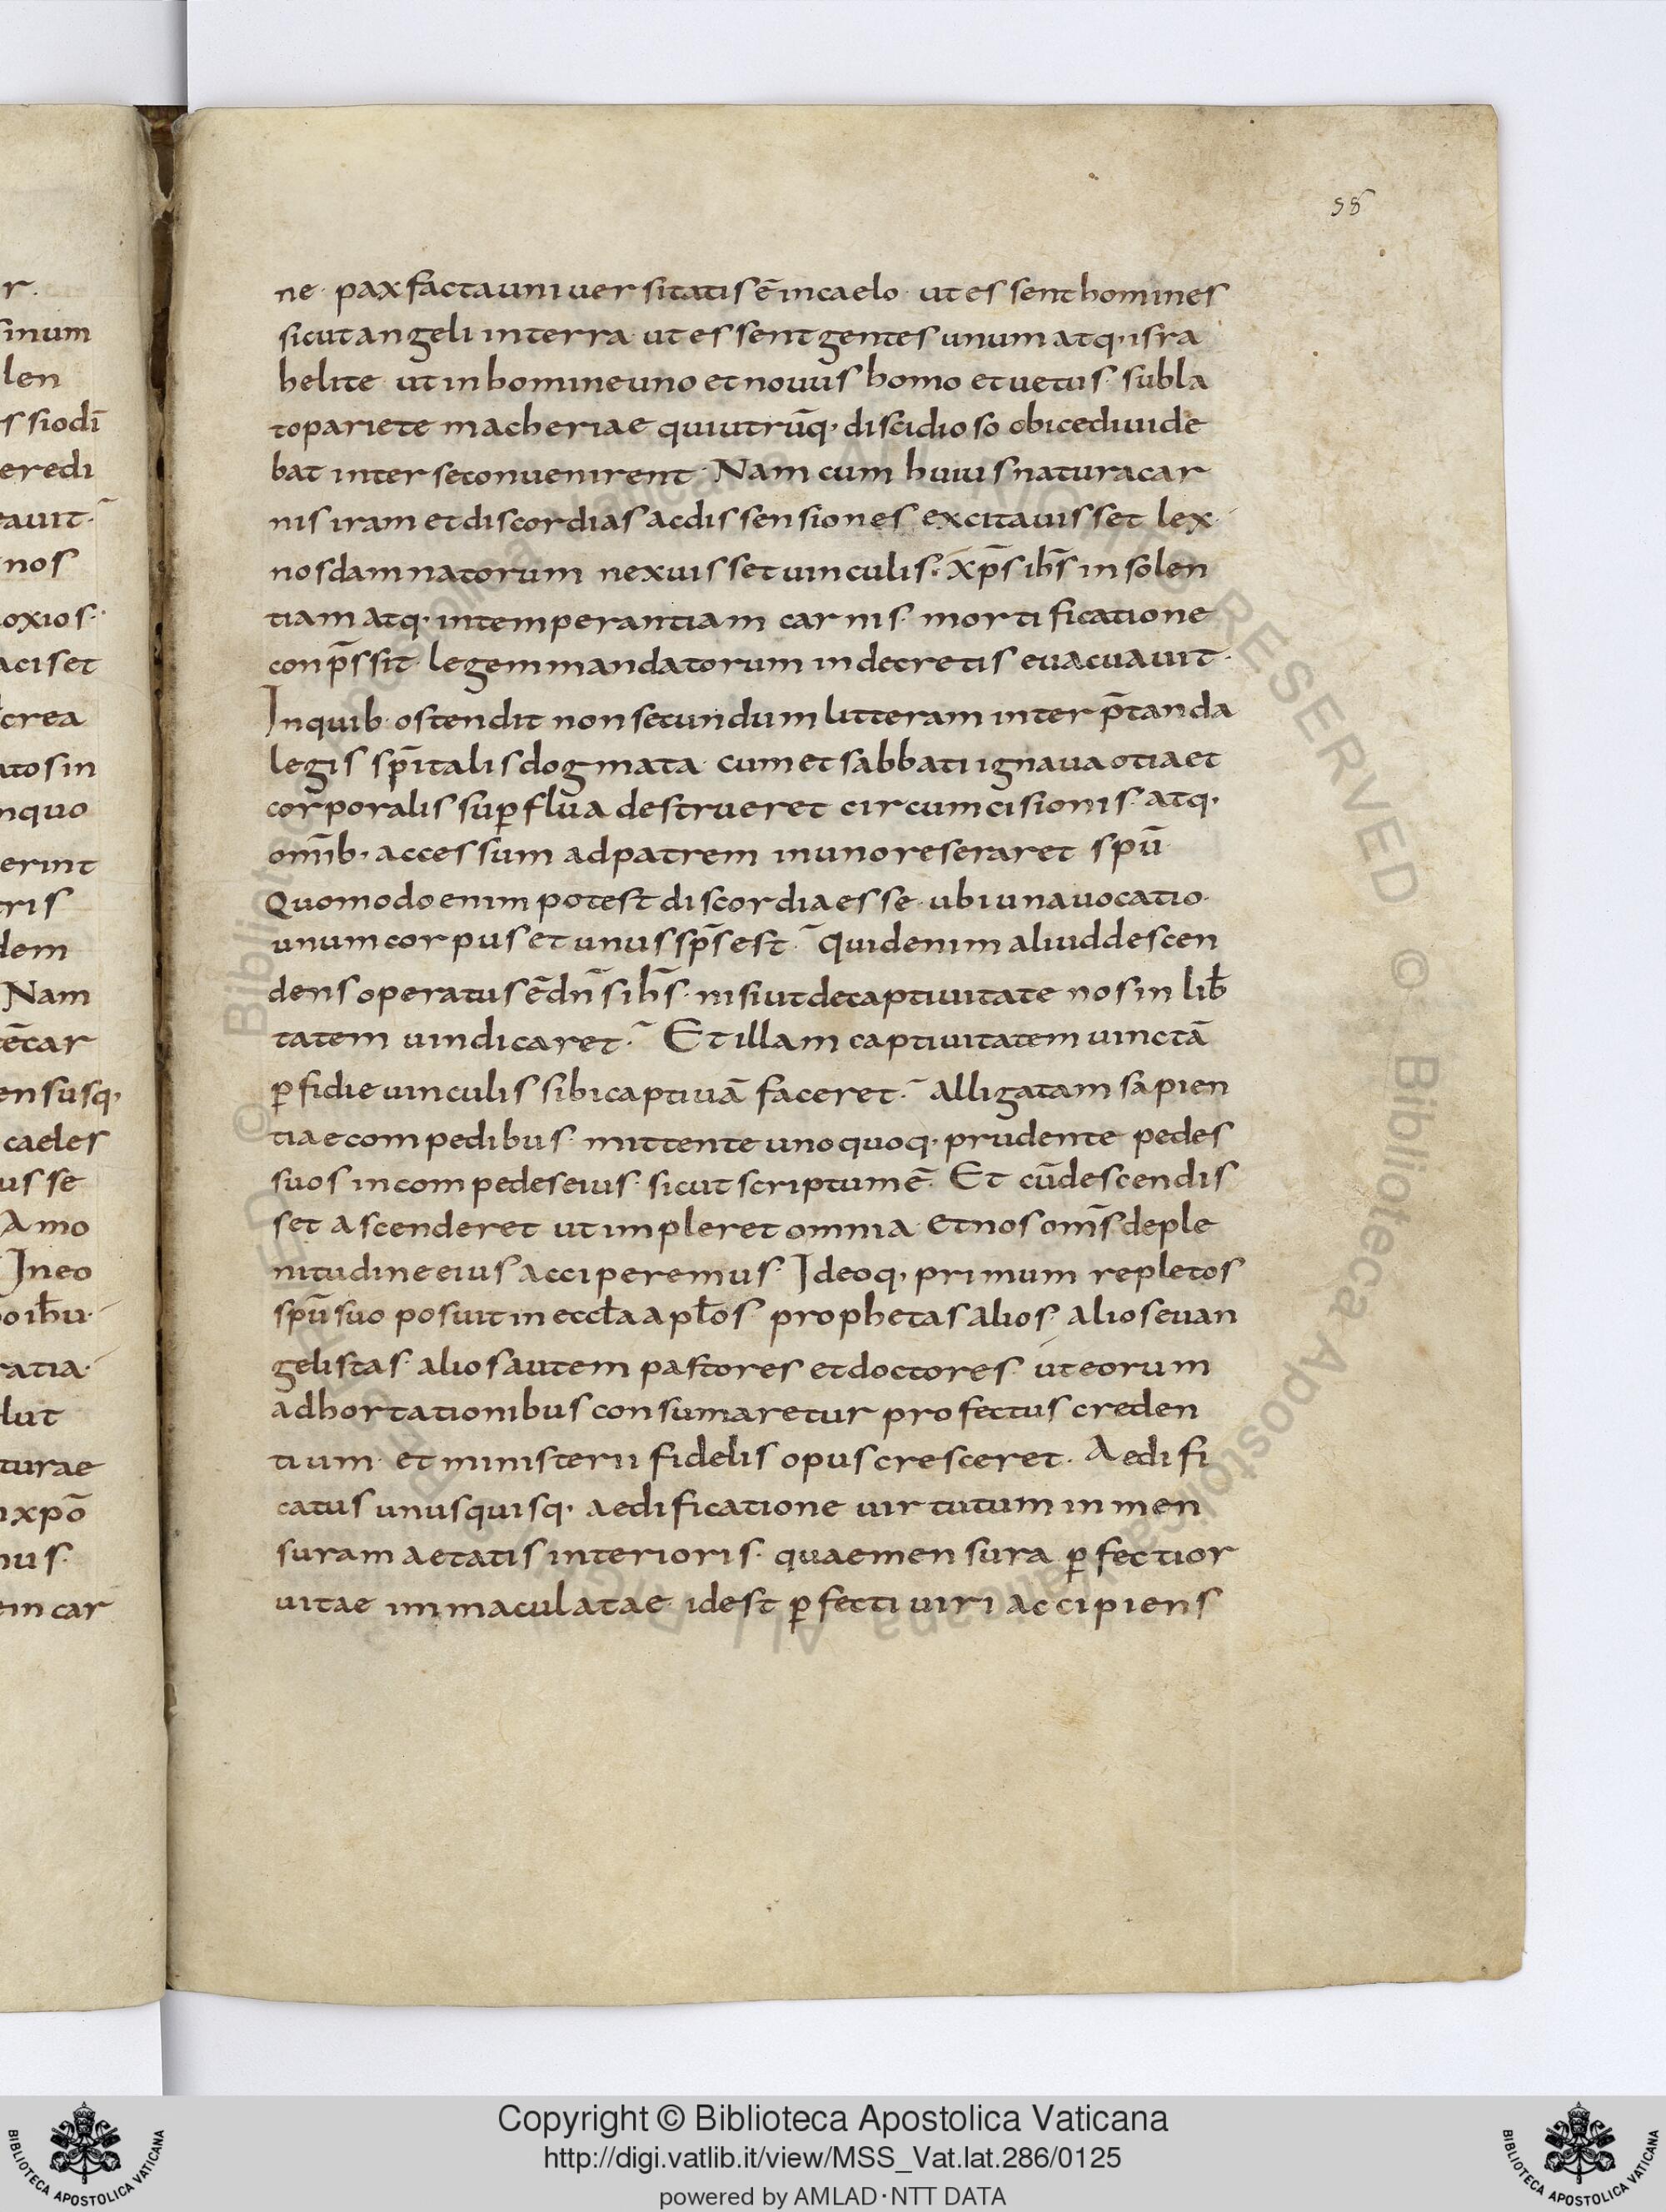 r.
sinum
len
rs siodī
eredi
auit.
nos
oxios.
acis et
crea
atos in
nquo
erint
ris
dem
Nam
tēcar
ensusq,
caeles
us se
Amo
In eo
ratia.
lut
turae
xpō
nus.
em car
58
ne. pax facta universitatis ē in caelo. ut essent homines
sicut angeli in terra. ut essent gentes unum atq, isra
helite ut in homine uno et novus homo et uetus. subla
to pariete macheriae qui utrūq, discidioso obice diuide
bat inter se convenirent. Nam cum huius natura car
nis iram et discordias ac dissensiones excitavisset lex
nos damnatorum nexuisset uinculis. xp̄s ih̄s insolen
tiam atq, intemperantiam carnis. mortificatione
conp̄ssit. legem mandatorum in decretis evacuavit.
In quib. ostendit non secundum litteram interp̄tanda
legis sp̄italis dogmata. cum et sabbati ignava otia et
corporalis sup̱flua destrueret circumcisionis. atq,
omīb, accessum ad patrem in uno reseraret spū.
Quomodo enim potest discordia esse. ubi una uocatio.
unum corpus et unus sp̄s est. Quid enim aliud descen
dens operatus ē dn̄s ih̄s. nisi ut de captivitate nos in lib̄
tatem uindicaret. Et illam captivitatem uinctā
p̱fidie uinculis sibi captivā faceret. alligatam sapien
tiae compedibus. mittente uno quoq, prudente pedes
suos in compedes eius. sicut scriptum ē. Et cū descendis
set ascenderet ut impleret omnia. et nos om̄s de ple
nitudine eius acciperemus. Ideoq, primum repletos
spū suo posuit in eccƚa apƚos. prophetas alios. alios evan
gelistas. alios autem pastores et doctores. ut eorum
adhortationibus consumaretur profectus creden
tium. et ministerii fidelis opus cresceret. Aedifi
catus unusquisq, aedificatione uirtutum in men
suram aetatis interioris. quae mensura p̱fectior
uitae immaculatae id est p̱fecti uiri accipiens
© Biblioteca Apostolica Vaticana ALL RIGHTS RESERVED
Copyright © Biblioteca Apostolica Vaticana
http://digi.vatlib.it/view/MSS_Vat.lat.286/0125
powered by AMLAD·NTT DATA
BIBLIOTECA APOSTOLICA VATICANA
BIBLIOTECA APOSTOLICA VATICANA